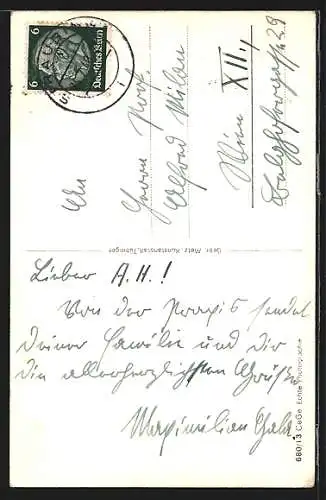 6 Deutsches Reich 6
An
Herrn Prof.
Alfred Milan
Wien XII.,
29
Gebr. Metz, Kunstanstalt, Tübingen
Lieber A.H.!
Von der Praxis sendet
Deiner Familie und Dir
die allerherzlichsten Grüße
Maximilian
680/13 CeGe Echte Photographie